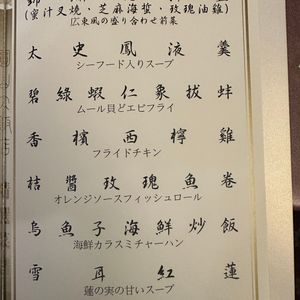 (蜜汁叉燒・芝麻海蜇・玫瑰油雞)
広東風の盛り合わせ前菜
太史鳳液羹
シーフード入りスープ
碧綠蝦仁象拔蚌
ムール貝どエビフライ
香檳西檸雞
フライドチキン
桔醬玫瑰魚卷
オレンジソースフィッシュロール
烏魚子海鮮炒飯
海鮮カラスミチャーハン
雪耳紅蓮
蓮の実の甘いスープ